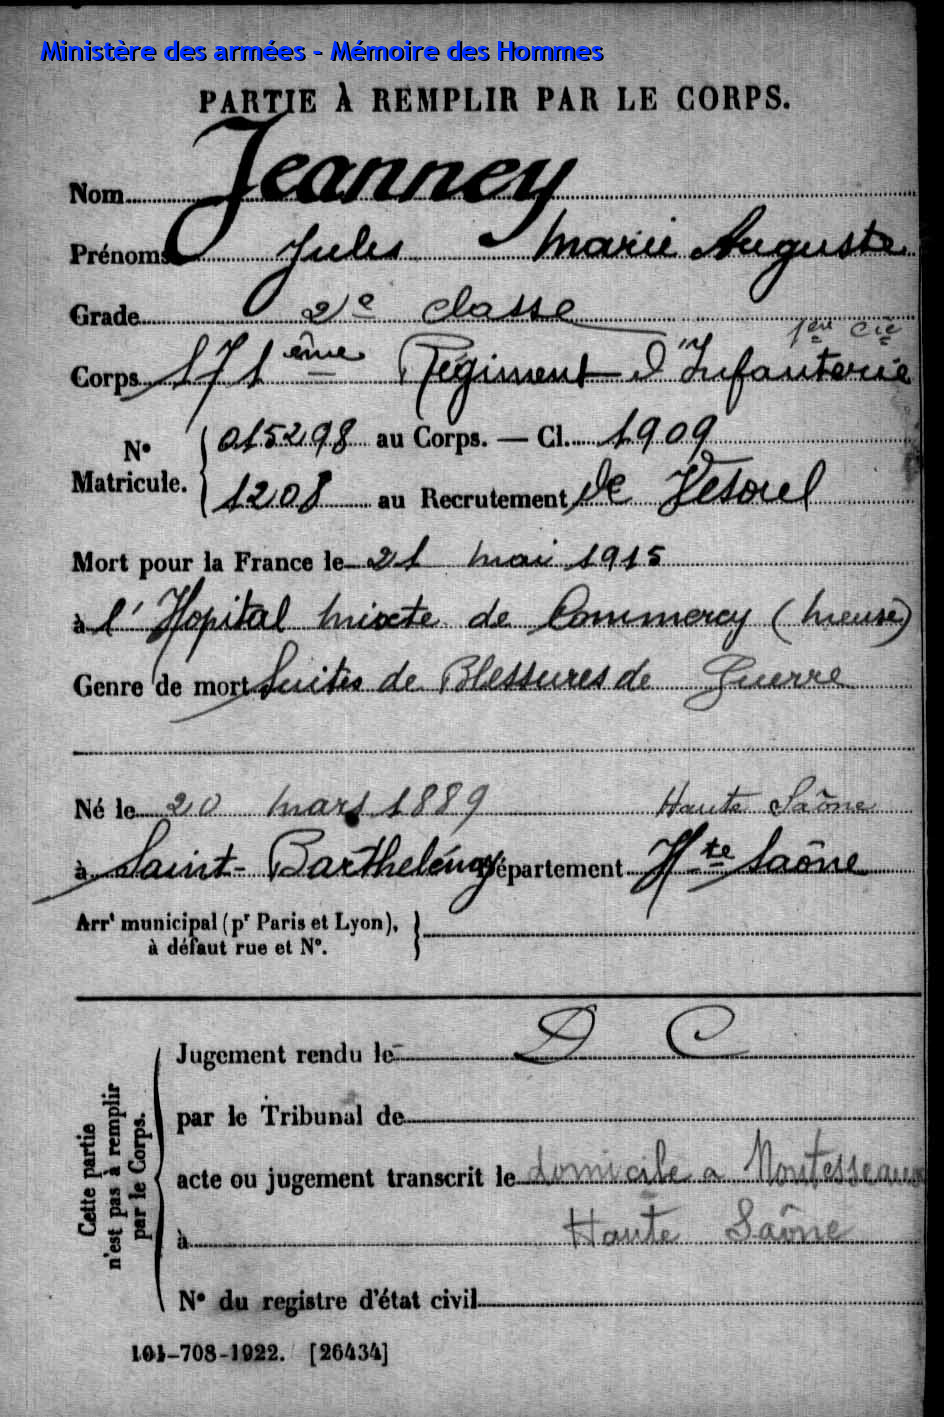 Ministère des armées - Mémoire des Hommes
PARTIE À REMPLIR PAR LE CORPS.
Nom Jeanney
Prénoms Jules Marie Auguste
Grade 2e classe
1ere Cie
Corps 171ème Régiment d'Infanterie
N° Matricule. { 015298 au Corps. — Cl. 1909
1208 au Recrutement de Vesoul
Mort pour la France le 21 mai 1915
à l'Hopital mixte de Commercy (Meuse)
Genre de mort Suites de Blessures de Guerre
Né le 20 mars 1889 Haute Saône
à Saint-Barthelémy Département Hte Saône
Arrt municipal (pr Paris et Lyon),
à défaut rue et N°.
Cette partie n'est pas à remplir par le Corps.
Jugement rendu le D C
par le Tribunal de
acte ou jugement transcrit le domicile a Montesseaux
à Haute Saône
N° du registre d'état civil
101-708-1922. [26434]